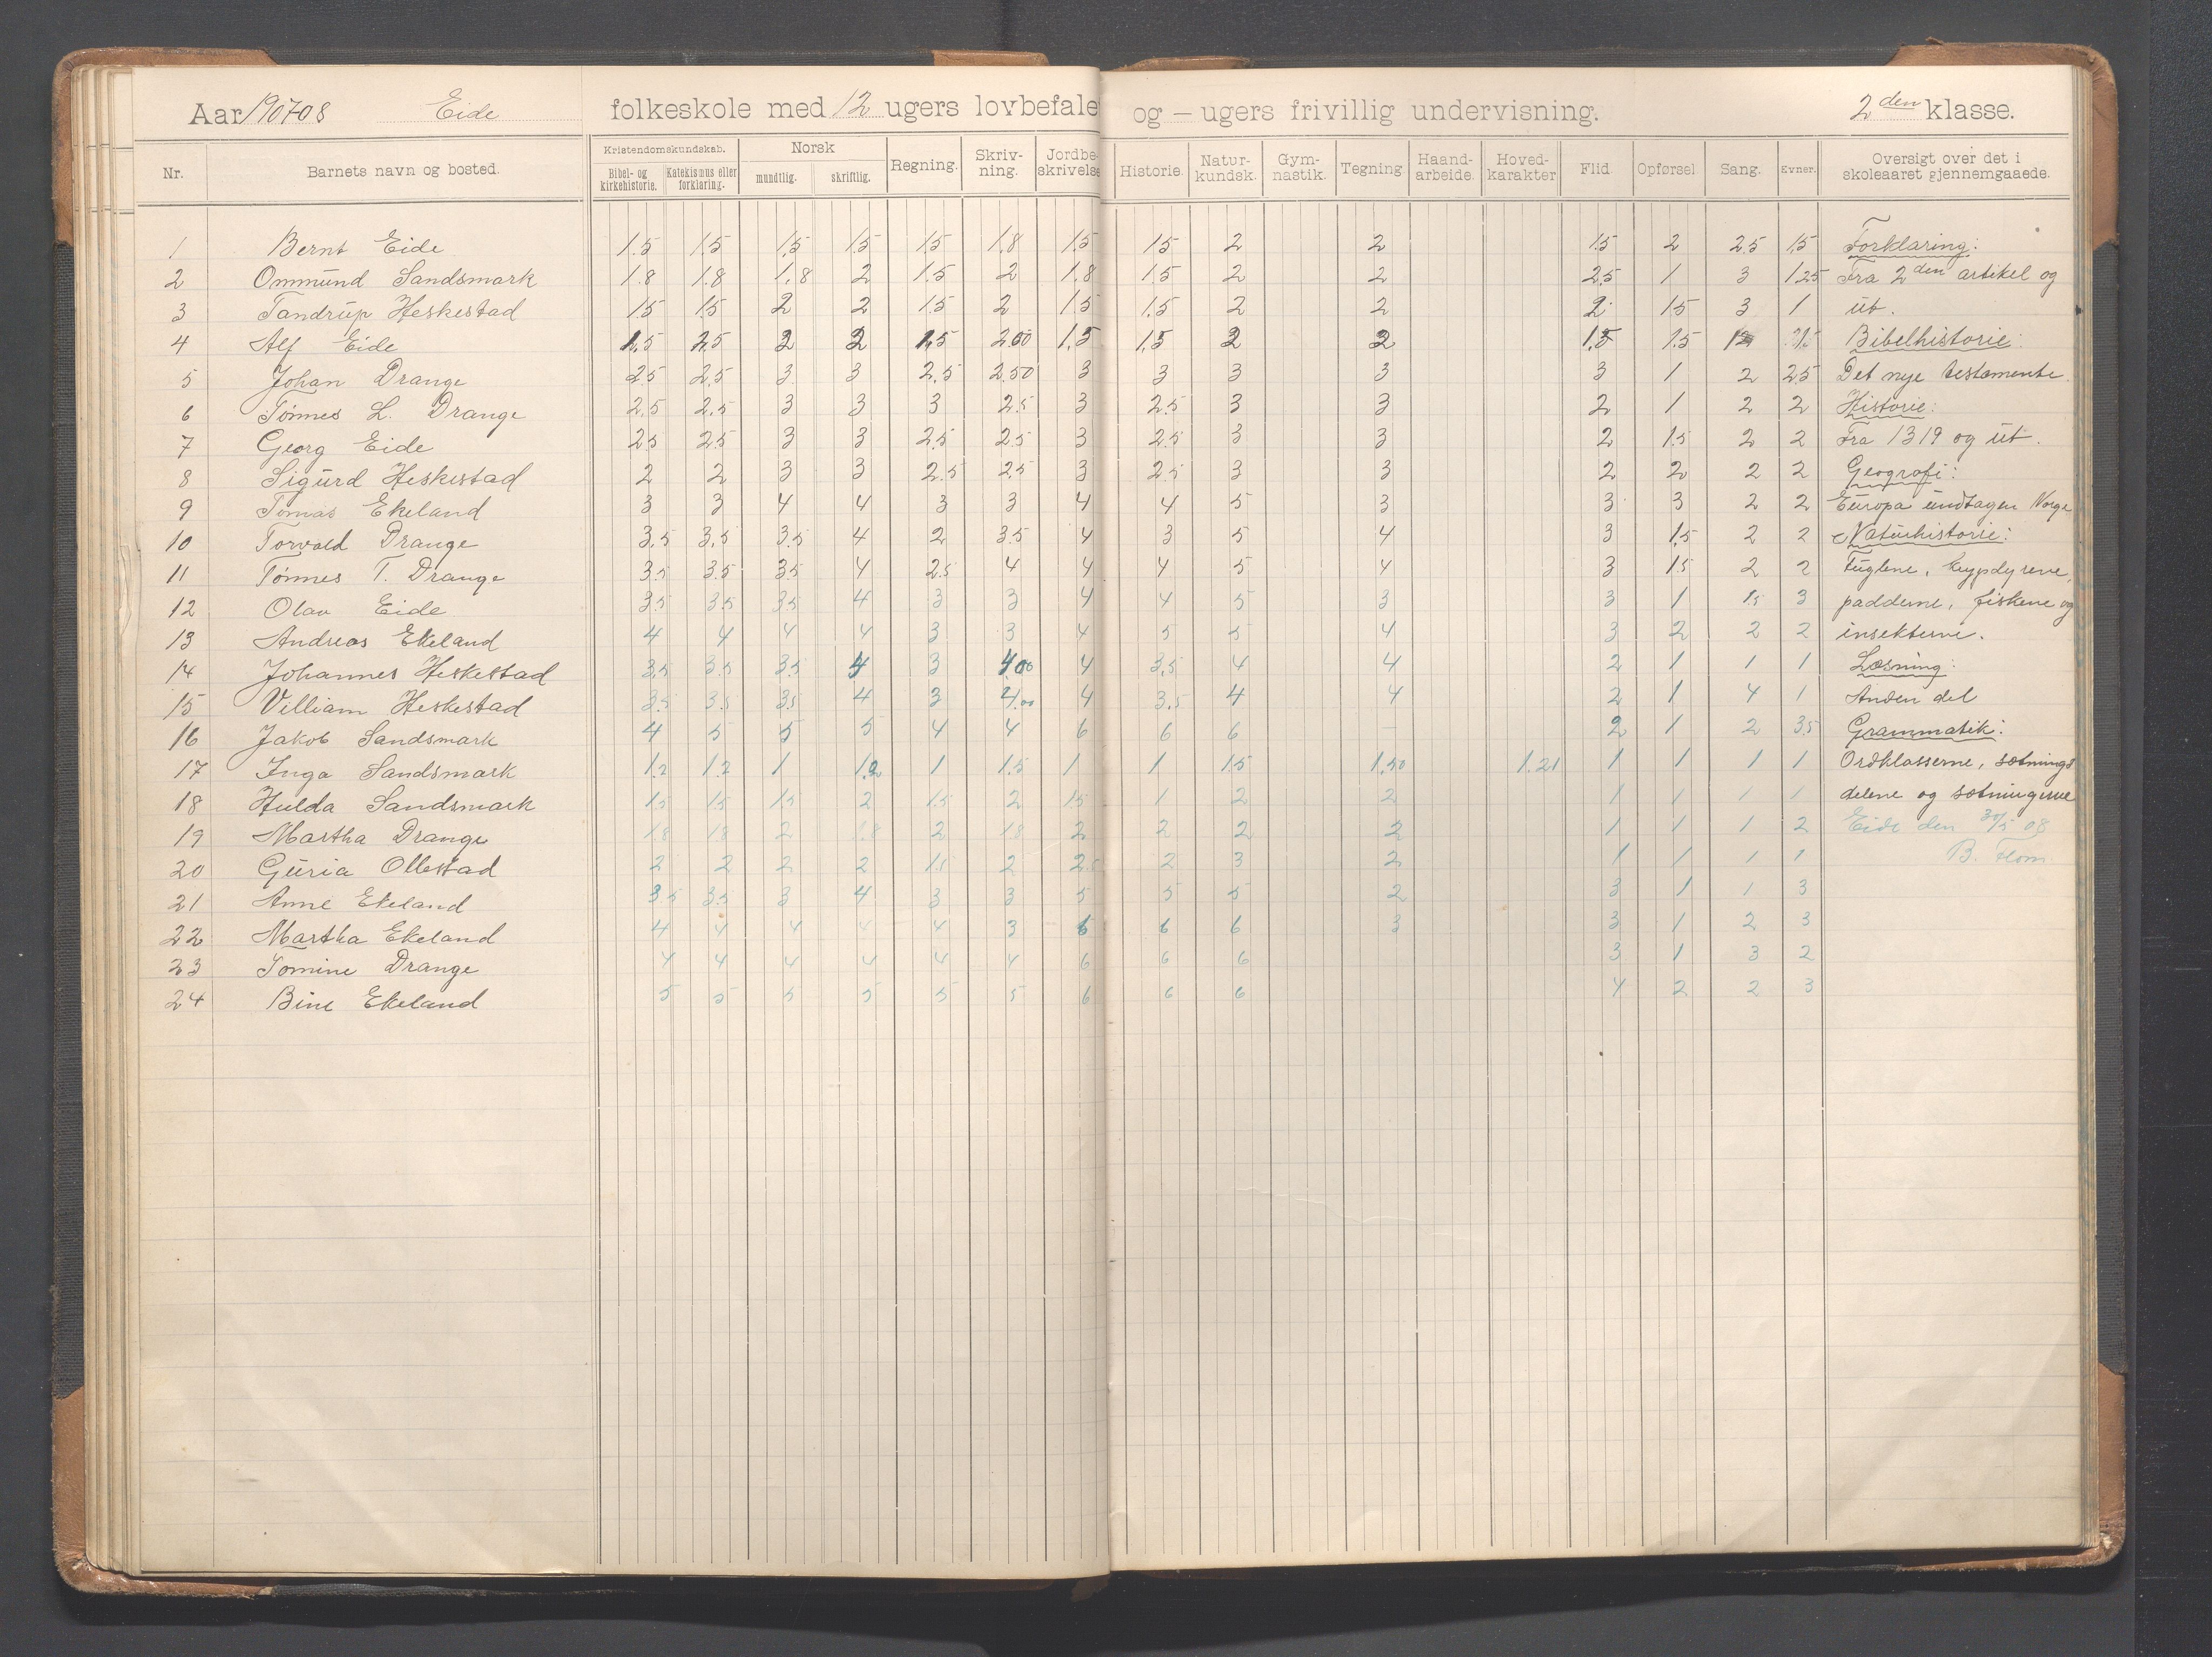 Aar 190708 Eide folkeskole med 12 ugers lovbefale og — ugers frivillig undervisning. 2den klasse.
Nr. Barnets navn og bosted. Kristendomskundskab. Bibel- og kirkehistorie. Katekismus eller forklaring. Norsk mundtlig. skriftlig. Regning. Skriv-ning. Jordbe-skrivelse Historie. Natur-kundsk. Gym-nastik. Tegning Haand-arbeide. Hoved-karakter Flid Opførsel Sang. Evner. Oversigt over det i skoleaaret gjennemgaaede.
1 Bernt Eide 1.5 1.5 1.5 1.5 1.5 1.8 1.5 1.5 2 2 1.5 2 2.5 1.5 Forklaring:
2 Ommund Sandsmark 1.8 1.8 1.8 2 1.5 2 1.8 1.5 2 2 2.5 1 3 1.25 Fra 2den artikel og
3 Tandrup Heskestad 1.5 1.5 2 2 1.5 2 1.5 1.5 2 2 2 1.5 3 1 ut.
4 Alf Eide 2.5 2.5 2 2 1.5 2.00 1.5 1.5 2 2 1.5 1.5 Bibelhistorie:
5 Johan Drange 2.5 2.5 3 3 2.5 2.50 3 3 3 3 3 1 2 2.5 Det nye testamente.
6 Tønnes L. Drange 2.5 2.5 3 3 3 2.5 3 2.5 3 3 2 1 2 2 Historie:
7 Georg Eide 2.5 2.5 3 3 2.5 2.5 3 2.5 3 3 2 1.5 2 2 Fra 1319 og ut.
8 Sigurd Heskestad 2 2 3 3 2.5 2.5 3 2.5 3 3 2 2 2 2 Geografi:
9 Tomas Ekeland 3 3 4 4 3 3 4 4 5 3 3 3 2 2 Europa undtagen Norge
10 Torvald Drange 3.5 3.5 3.5 4 2 3.5 4 3 5 4 3 1.5 2 2 Naturhistorie:
11 Tønnes T. Drange 3.5 3.5 3.5 4 2.5 4 4 4 5 4 3 1.5 2 2 Fuglene, krypdyrene,
12 Olav Eide 3.5 3.5 3.5 4 3 3 4 4 5 3 3 1 1.5 3 padderne, fiskene og
13 Andreas Ekeland 4 4 4 4 3 3 4 5 5 4 3 2 2 2 insekterne.
14 Johannes Heskestad 3.5 3.5 3.5 4 3 4.00 4 3.5 4 4 2 1 1 1 Læsning:
15 Villiam Heskestad 3.5 3.5 3.5 4 3 4.00 4 3.5 4 4 2 1 4 1 Anden del
16 Jakob Sandsmark 4 5 5 5 4 4 6 6 6 2 1 2 3.5 Grammatik:
17 Inga Sandsmark 1.2 1.2 1 1.2 1 1.5 1 1 1.5 1.50 1.21 1 1 1 1 Ordklasserne, sætnings
18 Hulda Sandsmark 1.5 1.5 1.5 2 1.5 2 1.5 1 2 2 1 1 1 1 delene og sætningerne
19 Martha Drange 1.8 1.8 2 1.8 2 1.8 2 2 2 2 1 1 1 2 Eide den 30/5 08
20 Guria Ollestad 2 2 2 2 1.5 2 2.5 2 3 2 1 1 1 1 B. Flom
21 Anne Ekeland 3.5 3.5 3 4 3 3 5 5 5 2 3 1 1 3
22 Martha Ekeland 4 4 4 4 4 3 6 6 6 3 3 1 2 3
23 Tomine Drange 4 4 4 4 4 4 6 6 6 3 1 3 2
24 Bine Ekeland 5 5 5 5 5 5 6 6 6 4 2 2 3